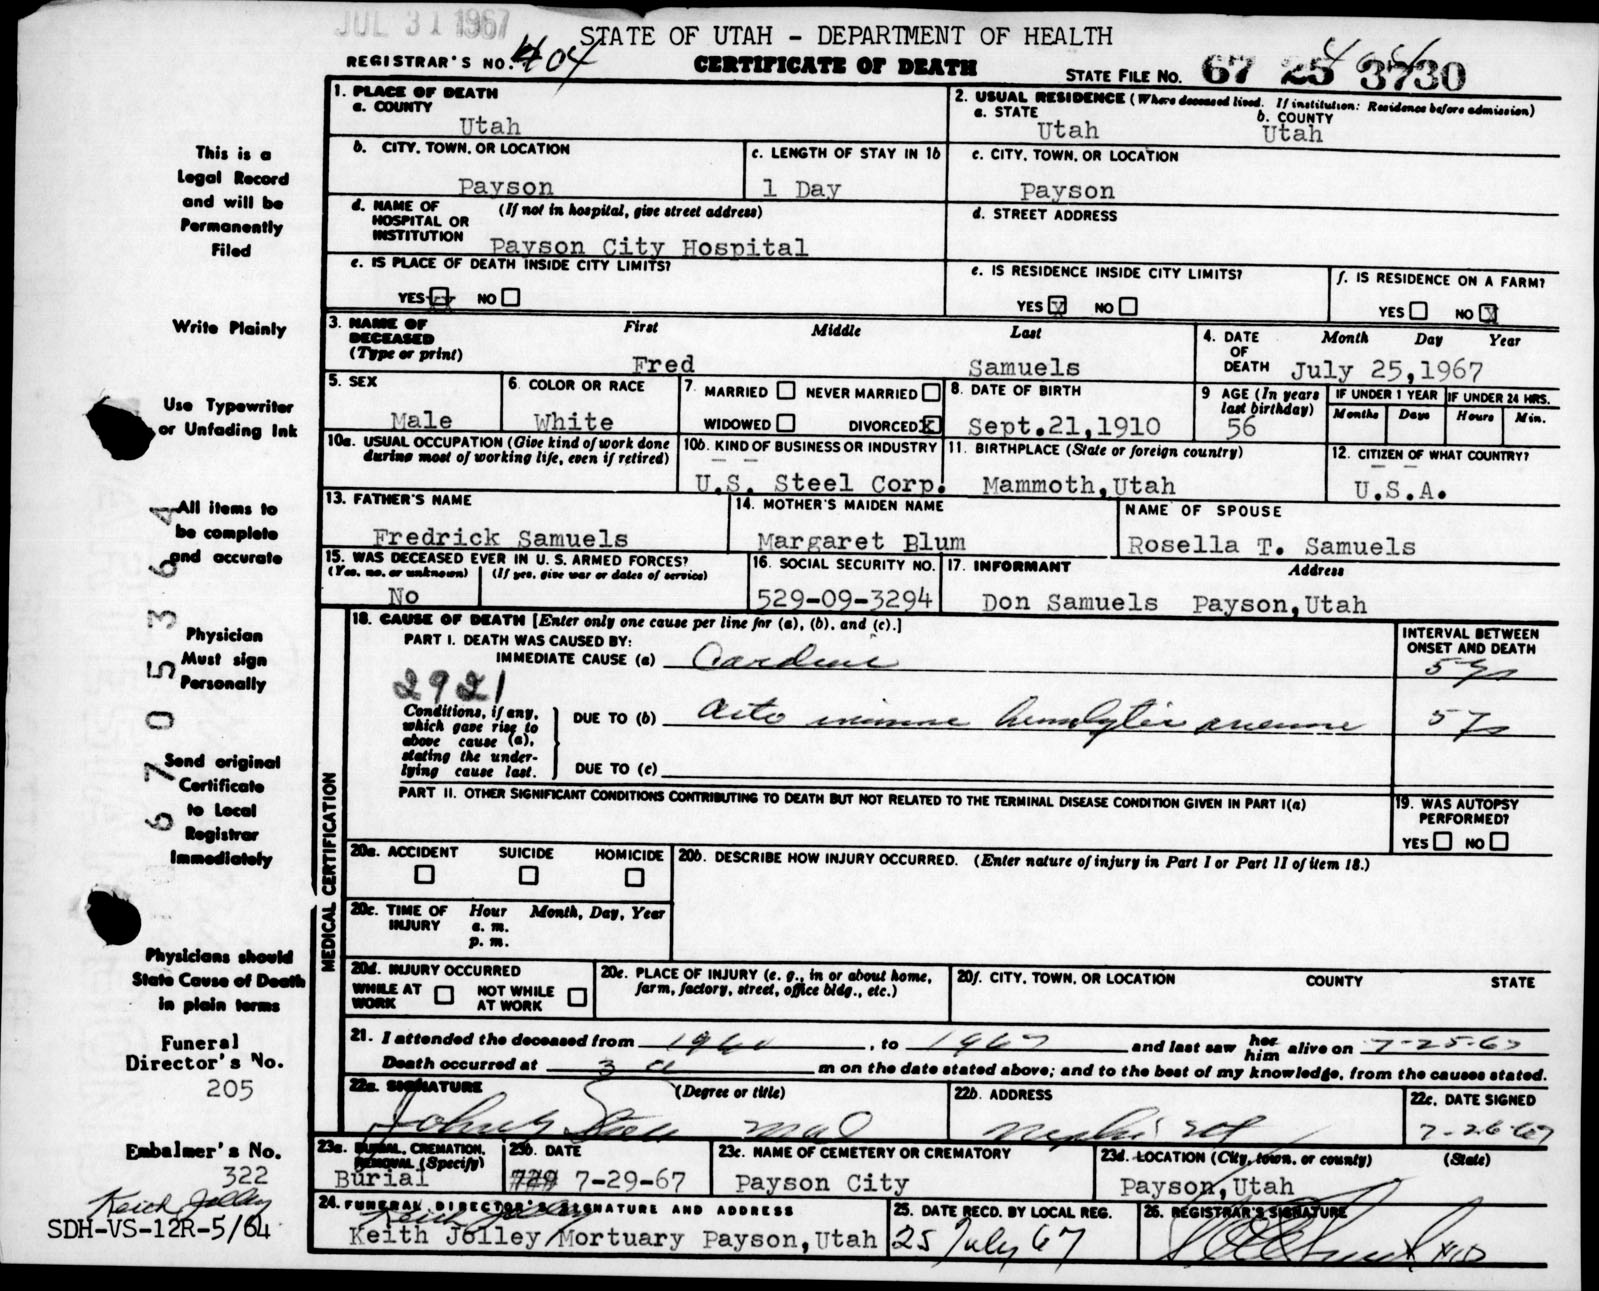 JUL 31 1967
STATE OF UTAH - DEPARTMENT OF HEALTH
REGISTRAR'S NO. 404
CERTIFICATE OF DEATH
STATE FILE NO. 67 25 3730
44
1. PLACE OF DEATH
a. COUNTY
Utah
2. USUAL RESIDENCE (Where deceased lived. If institution: Residence before admission)
a. STATE
Utah
b. COUNTY
Utah
This is a
Legal Record
and will be
Permanently
Filed
b. CITY, TOWN, OR LOCATION
Payson
c. LENGTH OF STAY IN 1b
1 Day
c. CITY, TOWN, OR LOCATION
Payson
d. NAME OF (If not in hospital, give street address)
HOSPITAL OR
INSTITUTION Payson City Hospital
d. STREET ADDRESS
e. IS PLACE OF DEATH INSIDE CITY LIMITS?
YES xx NO
e. IS RESIDENCE INSIDE CITY LIMITS?
YES X NO
f. IS RESIDENCE ON A FARM?
YES NO X
Write Plainly
3. NAME OF
DECEASED
(Type or print)
First Middle Last
Fred Samuels
4. DATE
OF
DEATH
Month Day Year
July 25,1967
Use Typewriter
or Unfading Ink
5. SEX
Male
6. COLOR OR RACE
White
7. MARRIED NEVER MARRIED
WIDOWED DIVORCED X
8. DATE OF BIRTH
Sept.21,1910
9 AGE (In years
last birthday)
56
IF UNDER 1 YEAR
Months Days
IF UNDER 24 HRS.
Hours Min.
10a. USUAL OCCUPATION (Give kind of work done
during most of working life, even if retired)
10b. KIND OF BUSINESS OR INDUSTRY
U.S. Steel Corp.
11. BIRTHPLACE (State or foreign country)
Mammoth,Utah
12. CITIZEN OF WHAT COUNTRY?
U.S.A.
All items to
be complete
and accurate
13. FATHER'S NAME
Fredrick Samuels
14. MOTHER'S MAIDEN NAME
Margaret Blum
NAME OF SPOUSE
Rosella T. Samuels
15. WAS DECEASED EVER IN U. S. ARMED FORCES?
(Yes, no, or unknown) (If yes, give war or dates of service)
No
16. SOCIAL SECURITY NO.
529-09-3294
17. INFORMANT Address
Don Samuels Payson,Utah
67 0 5 3 6 4
Physician
Must sign
Personally
MEDICAL CERTIFICATION
18. CAUSE OF DEATH [Enter only one cause per line for (a), (b), and (c).]
PART I. DEATH WAS CAUSED BY:
IMMEDIATE CAUSE (a)
INTERVAL BETWEEN
ONSET AND DEATH
5 yrs
2921
Conditions, if any,
which gave rise to
above cause (a),
stating the under-
lying cause last.
DUE TO (b) Auto immune hemolytic anemia
5 yrs
DUE TO (c)
Send original
Certificate
to Local
Registrar
Immediately
PART II. OTHER SIGNIFICANT CONDITIONS CONTRIBUTING TO DEATH BUT NOT RELATED TO THE TERMINAL DISEASE CONDITION GIVEN IN PART I(a)
19. WAS AUTOPSY
PERFORMED?
YES NO
20a. ACCIDENT SUICIDE HOMICIDE
20b. DESCRIBE HOW INJURY OCCURRED. (Enter nature of injury in Part I or Part II of item 18.)
20c. TIME OF Hour Month, Day, Year
INJURY a. m.
p. m.
Physicians should
State Cause of Death
in plain terms
20d. INJURY OCCURRED
WHILE AT
WORK
NOT WHILE
AT WORK
20e. PLACE OF INJURY (e. g., in or about home,
farm, factory, street, office bldg., etc.)
20f. CITY, TOWN, OR LOCATION COUNTY STATE
21. I attended the deceased from 1960, to 1967 and last saw her him alive on 7-25-67
Death occurred at 3 a m on the date stated above; and to the best of my knowledge, from the causes stated.
Funeral
Director's No.
205
22a. SIGNATURE (Degree or title)
22b. ADDRESS
Nephi Ut
22c. DATE SIGNED
7-26-67
Embalmer's No.
322
Keith Jolley
SDH-VS-12R-5/64
23a. BURIAL, CREMATION,
REMOVAL (Specify)
Burial
23b. DATE
729 7-29-67
23c. NAME OF CEMETERY OR CREMATORY
Payson City
23d. LOCATION (City, town, or county) (State)
Payson,Utah
24. FUNERAL DIRECTOR'S SIGNATURE AND ADDRESS
Keith Jolley
Keith Jolley Mortuary Payson,Utah
25. DATE RECD. BY LOCAL REG.
25 July 67
26. REGISTRAR'S SIGNATURE